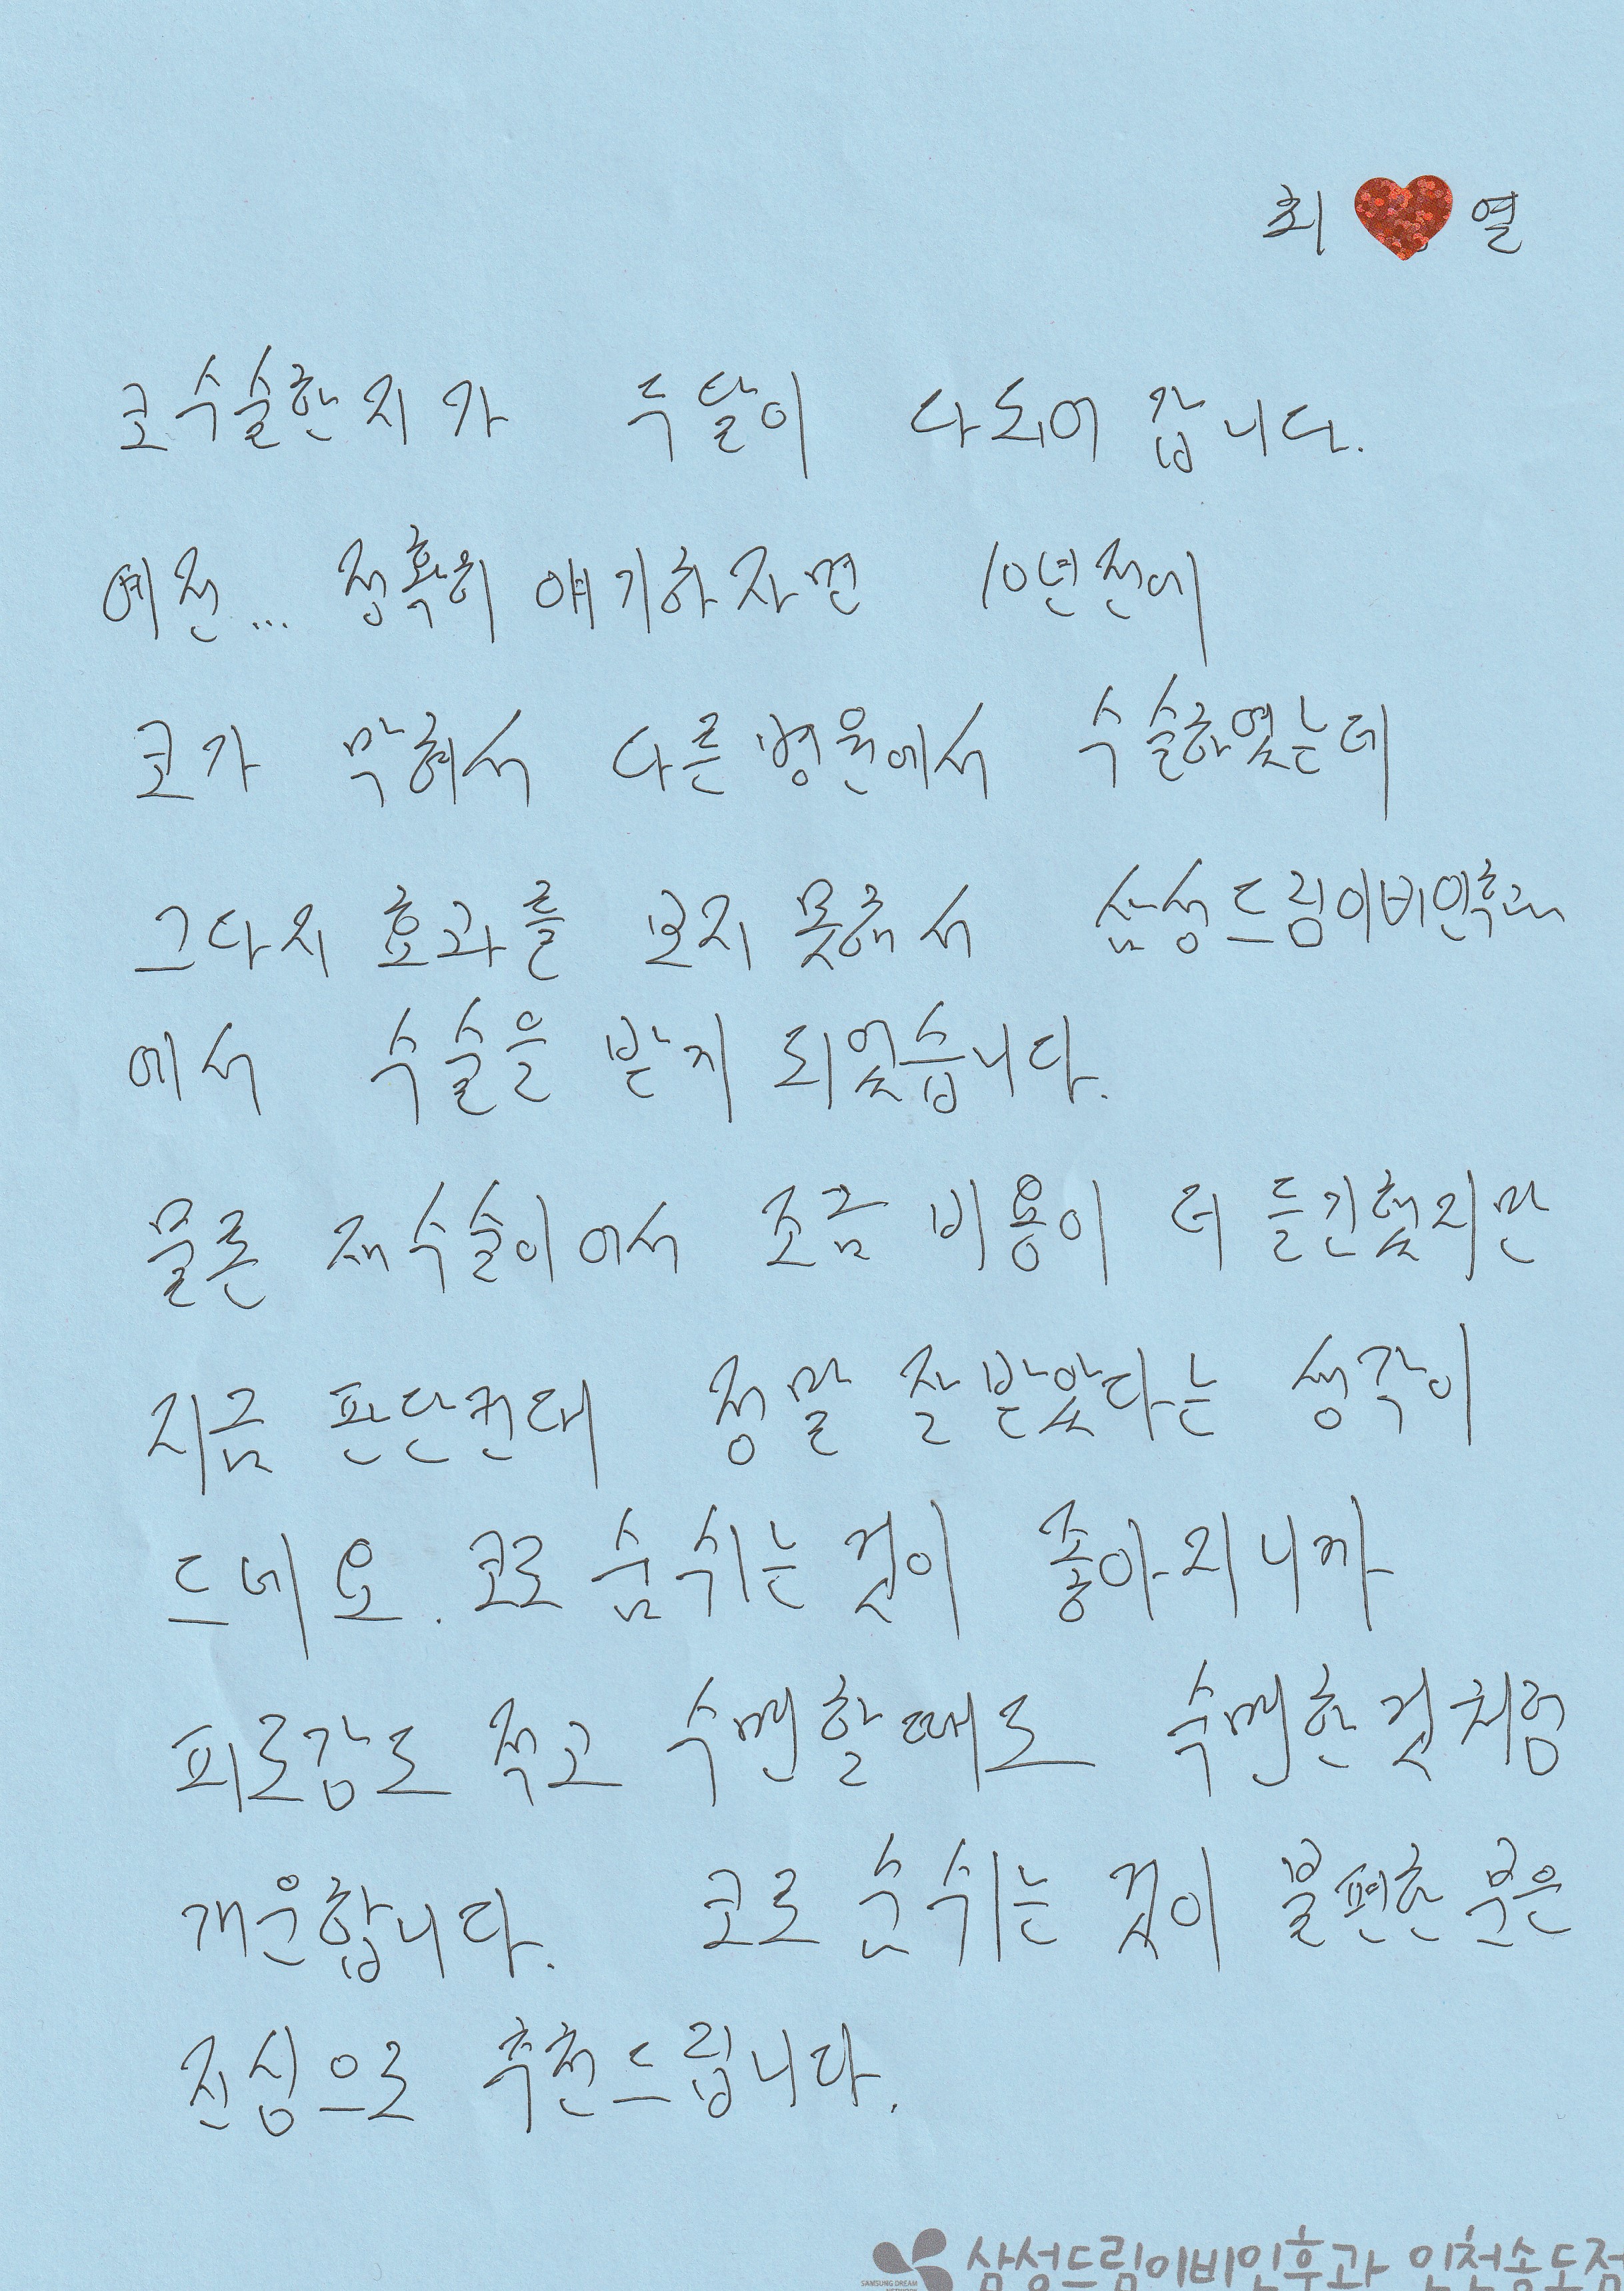 최 열
코수술한지가 두달이 다되어 갑니다.
예전... 정확히 얘기하자면 10년전에
코가 막혀서 다른병원에서 수술하였는데
그다지 효과를 보지 못해서 삼성드림이비인후과
에서 수술을 받게 되었습니다.
물론 재수술이어서 조금 비용이 더 들긴했지만
지금 판단컨대 정말 잘받았다는 생각이
드네요. 코로 숨쉬는 것이 좋아지니까
피로감도 적고 수면할때도 수면한것처럼
개운합니다. 코로 숨쉬는 것이 불편한 분은
진심으로 추천드립니다.
삼성드림이비인후과 인천송도점
SAMSUNG DREAM